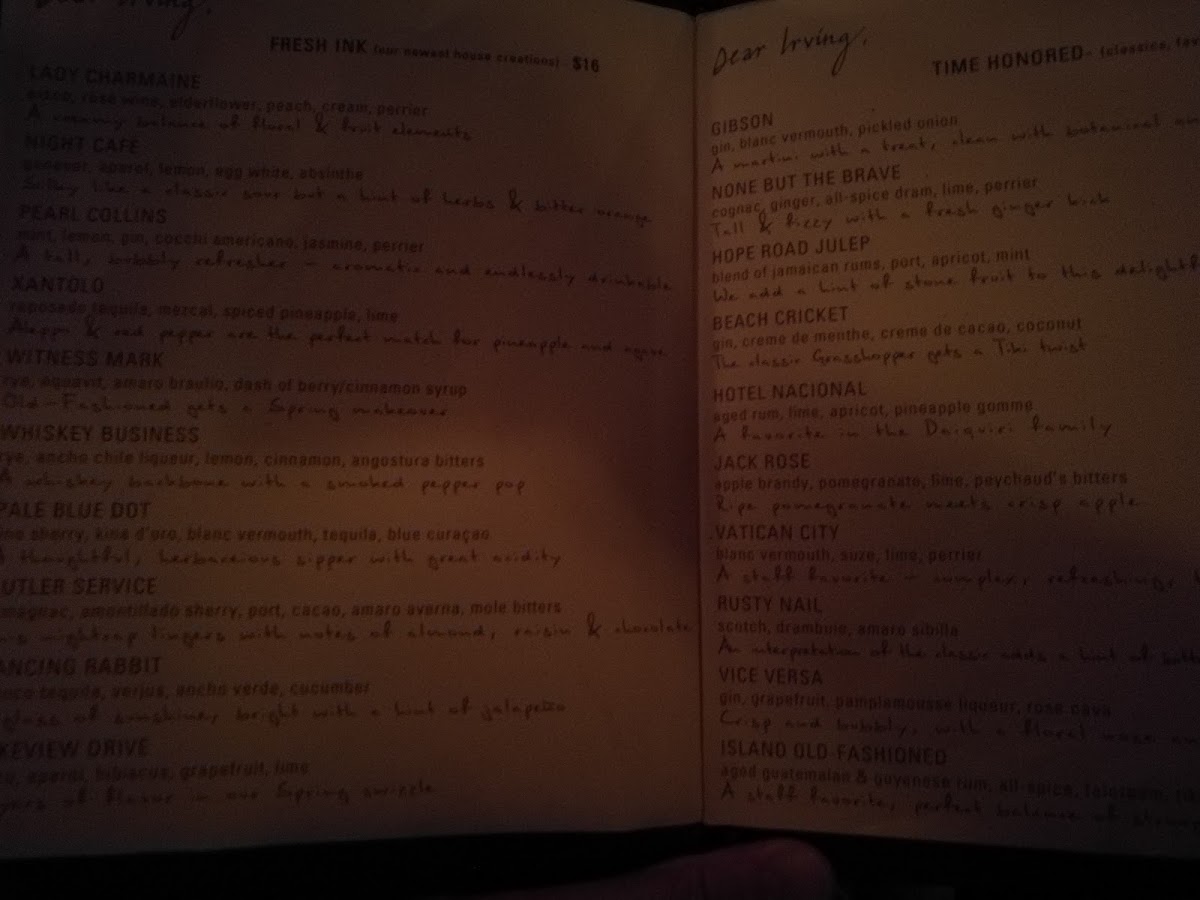 Dear Irving,
FRESH INK (our newest house creations) - $16
LADY CHARMAINE
rosé wine, elderflower, peach, cream, perrier
A creamy balance of floral & fruit elements
NIGHT CAFÉ
genever, aperol, lemon, egg white, absinthe
Silky like a classic sour but a hint of herbs & bitter orange
PEARL COLLINS
mint, lemon, gin, cocchi americano, jasmine, perrier
A tall, bubbly refresher - aromatic and endlessly drinkable
XANTOLO
reposado tequila, mezcal, spiced pineapple, lime
Aleppo & red pepper are the perfect match for pineapple and agave
WITNESS MARK
rye, aquavit, amaro braulio, dash of berry/cinnamon syrup
Old-Fashioned gets a Spring makeover
WHISKEY BUSINESS
rye, ancho chile liqueur, lemon, cinnamon, angostura bitters
A whiskey backbone with a smoked pepper pop
PALE BLUE DOT
sherry, kina d'oro, blanc vermouth, tequila, blue curaçao
A thoughtful, herbaceous sipper with great acidity
UTLER SERVICE
amontillado sherry, port, cacao, amaro averna, mole bitters
nightcap lingers with notes of almond, raisin & chocolate
ANCING RABBIT
tequila, verjus, ancho verde, cucumber
glass of sunshine, bright with a hint of jalapeño
KEVIEW DRIVE
aperol, hibiscus, grapefruit, lime
of flavor in our Spring swizzle
Dear Irving,
TIME HONORED- (classics,
GIBSON
gin, blanc vermouth, pickled onion
A martini with a treat, clean with botanical
NONE BUT THE BRAVE
cognac, ginger, all-spice dram, lime, perrier
Tall & fizzy with a fresh ginger kick
HOPE ROAD JULEP
blend of jamaican rums, port, apricot, mint
We add a hint of stone fruit to this
BEACH CRICKET
gin, creme de menthe, creme de cacao, coconut
The classic Grasshopper gets a Tiki twist
HOTEL NACIONAL
aged rum, lime, apricot, pineapple gomme
A favorite in the Daiquiri family
JACK ROSE
apple brandy, pomegranate, lime, peychaud's bitters
Ripe pomegranate meets crisp apple
VATICAN CITY
blanc vermouth, suze, lime, perrier
A staff favorite - complex, refreshing,
RUSTY NAIL
scotch, drambuie, amaro sibilla
An interpretation of the classic adds a hint of
VICE VERSA
gin, grapefruit, pamplamousse liqueur, rosé cava
Crisp and bubbly, with a floral
ISLAND OLD-FASHIONED
aged guatemalan & guyenese rum, all-spice, falernum,
A staff favorite, perfect balance of